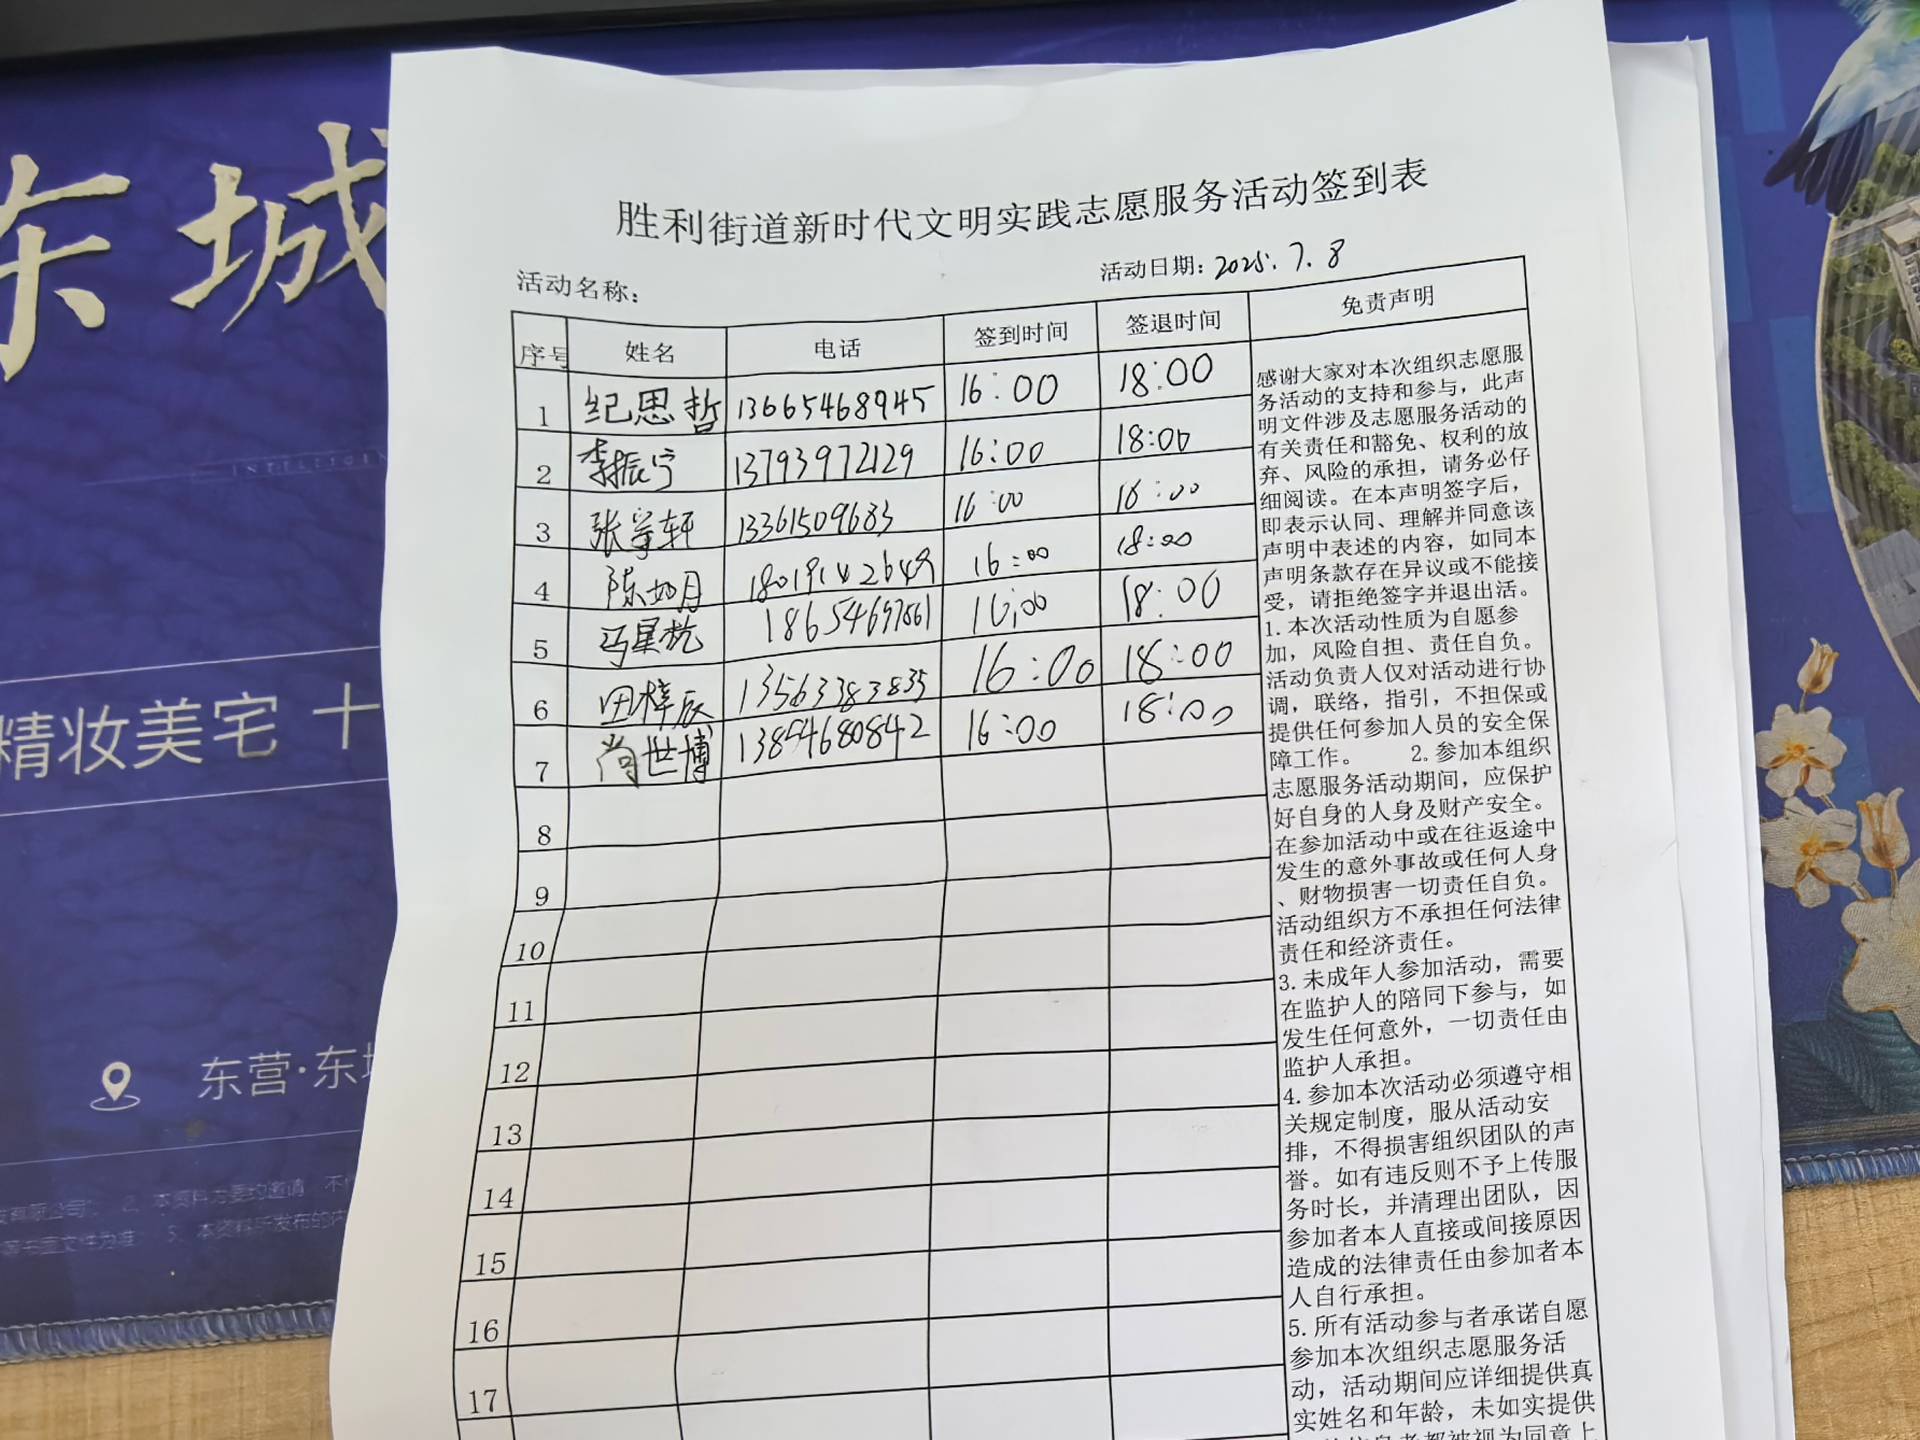 东城
INTELLIGEN
精妆美宅 十
东营·东城
胜利街道新时代文明实践志愿服务活动签到表
活动名称：
活动日期：2025.7.8
序号 姓名 电话 签到时间 签退时间 免责声明
1 纪思哲 13665468945 16:00 18:00
2 李振宁 13793972129 16:00 18:00
3 张 轩 13361509683 16:00 18:00
4 陈如月 16:00 18:00
5 冯星航 18654697861 16:00 18:00
6 田梓辰 13563383835 16:00 18:00
7 尚世博 13854680842 16:00 18:00
8
9
10
11
12
13
14
15
16
17
感谢大家对本次组织志愿服
务活动的支持和参与，此声
明文件涉及志愿服务活动的
有关责任和豁免、权利的放
弃、风险的承担，请务必仔
细阅读。在本声明签字后，
即表示认同、理解并同意该
声明中表述的内容，如同本
声明条款存在异议或不能接
受，请拒绝签字并退出活。
1.本次活动性质为自愿参
加，风险自担、责任自负。
活动负责人仅对活动进行协
调，联络，指引，不担保或
提供任何参加人员的安全保
障工作。 2.参加本组织
志愿服务活动期间，应保护
好自身的人身及财产安全。
在参加活动中或在往返途中
发生的意外事故或任何人身
、财物损害一切责任自负。
活动组织方不承担任何法律
责任和经济责任。
3.未成年人参加活动，需要
在监护人的陪同下参与，如
发生任何意外，一切责任由
监护人承担。
4.参加本次活动必须遵守相
关规定制度，服从活动安
排，不得损害组织团队的声
誉。如有违反则不予上传服
务时长，并清理出团队，因
参加者本人直接或间接原因
造成的法律责任由参加者本
人自行承担。
5.所有活动参与者承诺自愿
参加本次组织志愿服务活
动，活动期间应详细提供真
实姓名和年龄，未如实提供